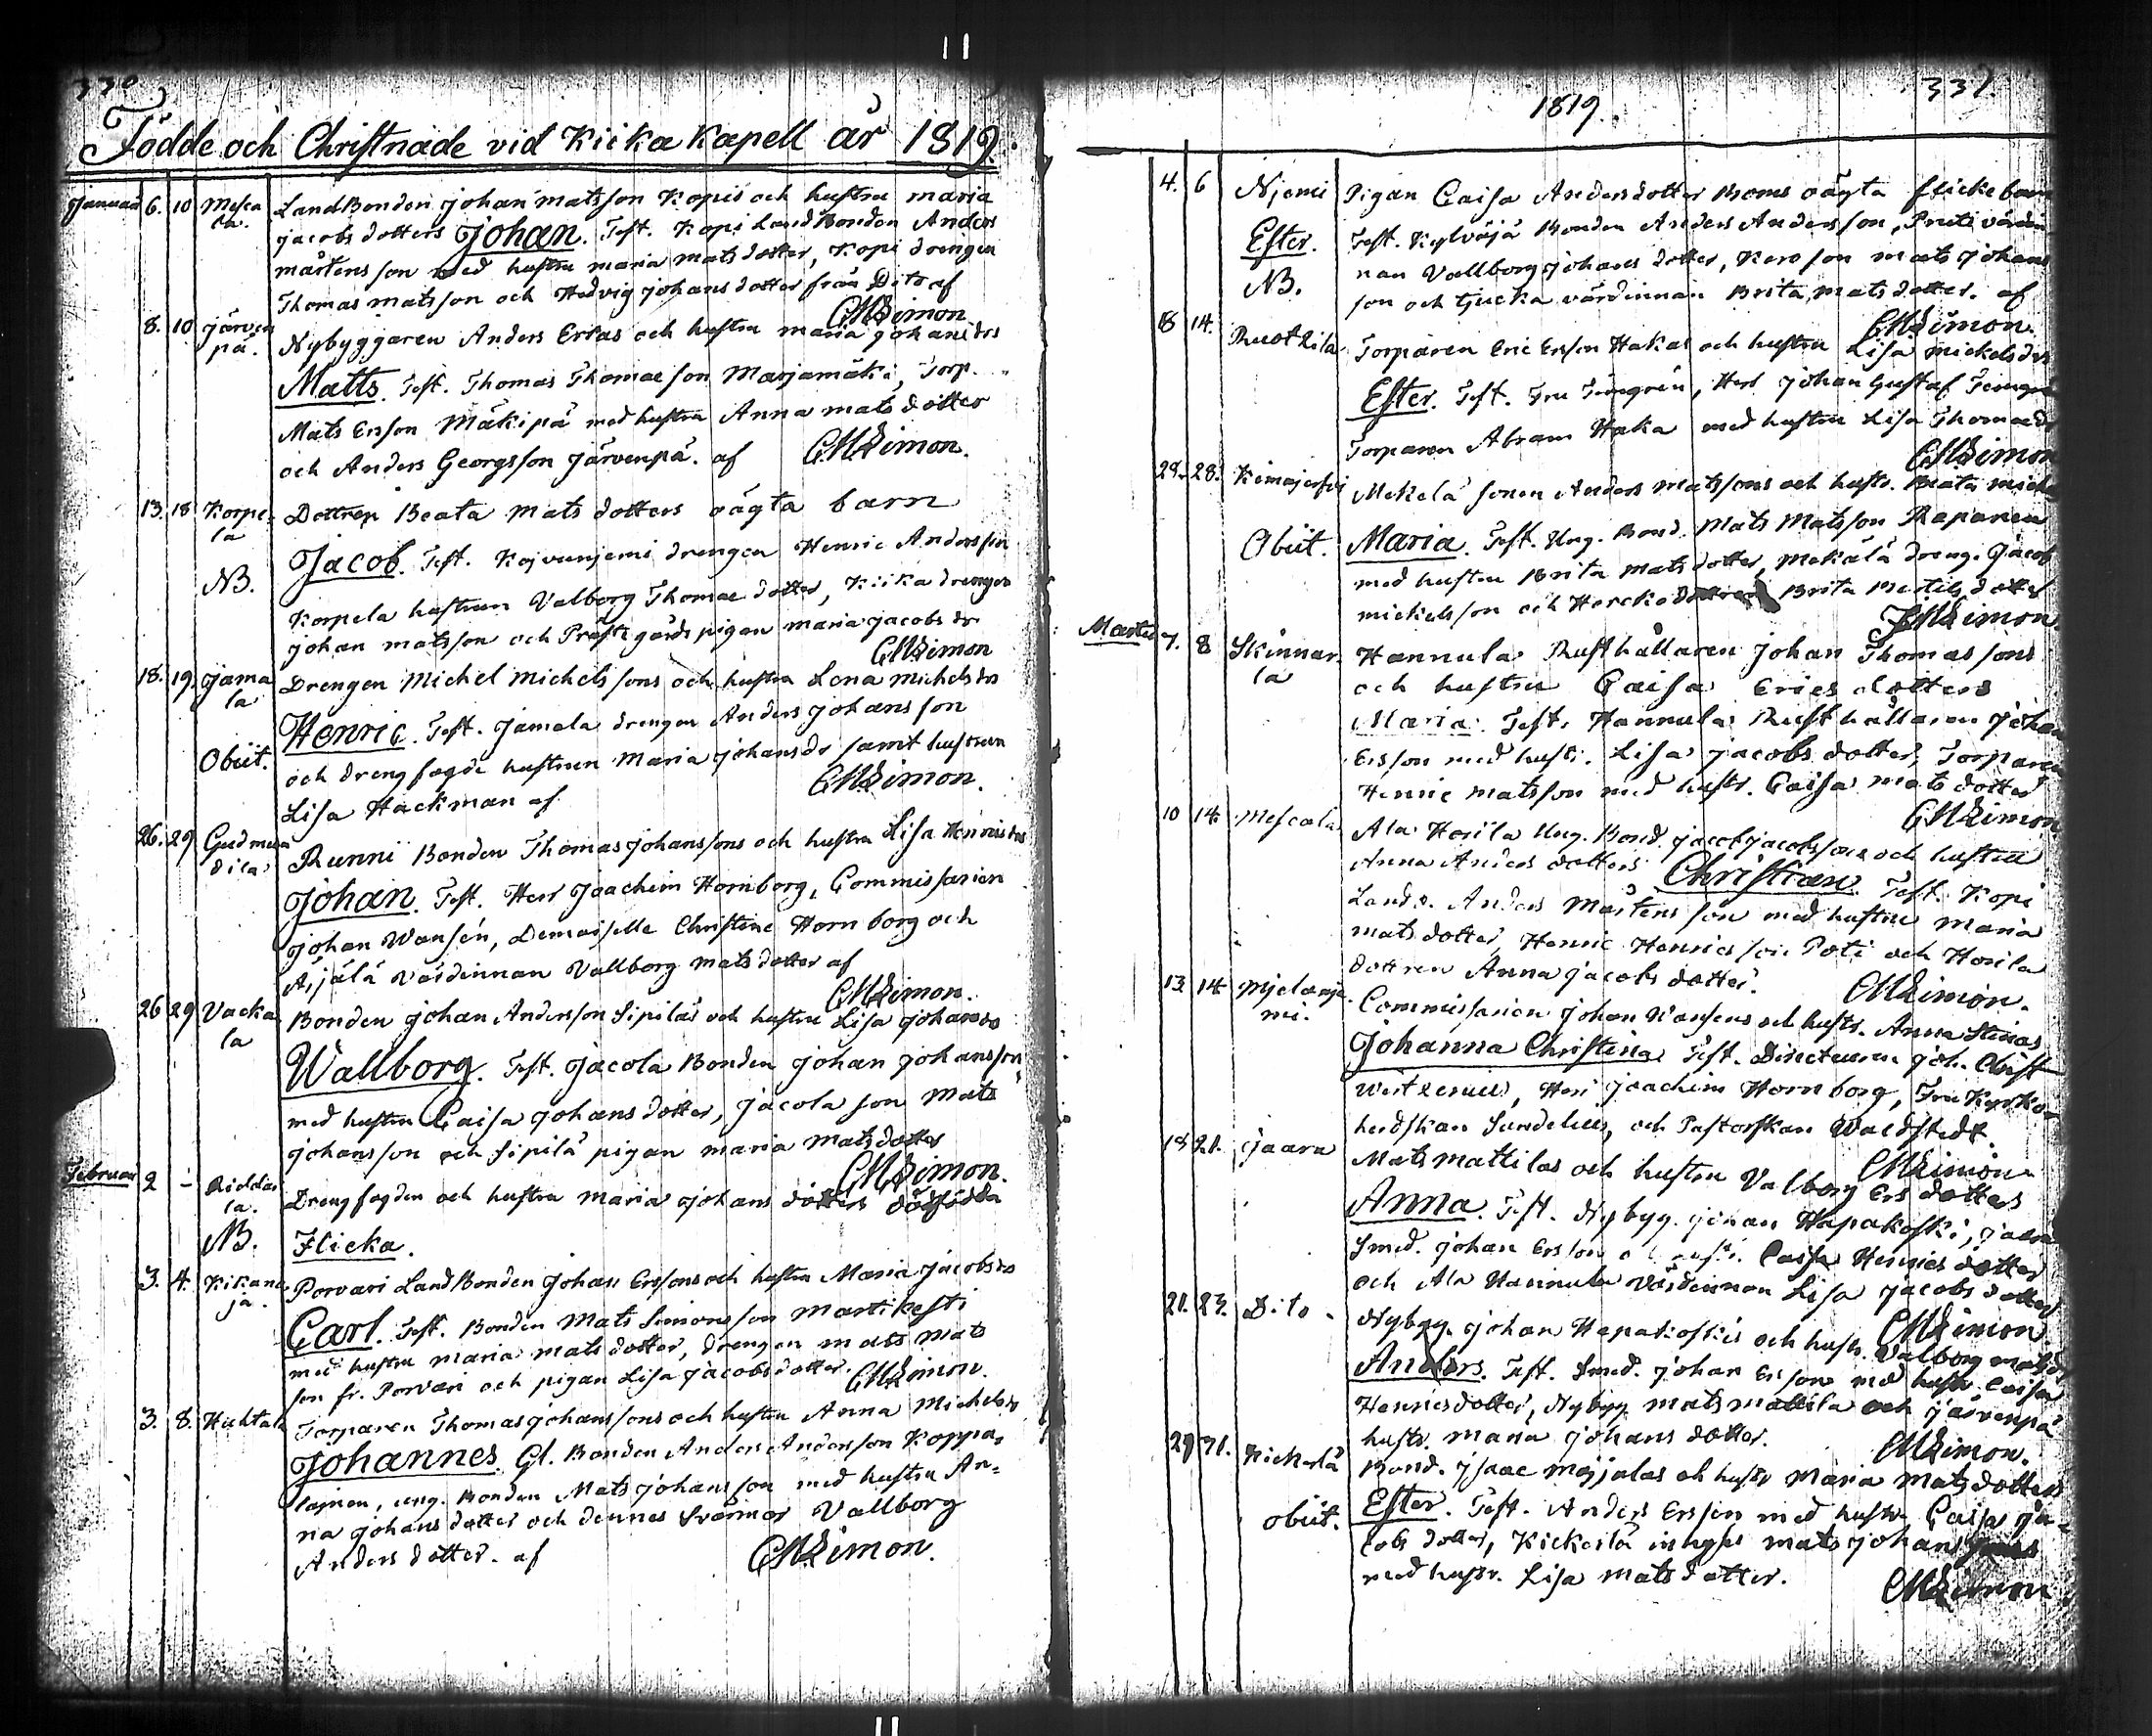 330
Födde och Christnade vid Kiika Kapell år 1819.
Januari 6. 10 Mesca LandBonden Johan Matsson Kopis och hustru Maria
la. Jacobs dotters Johan. Test. Kopi LandBonden Anders
Mårtensson med hustru Maria Mats dotter, Kopi drengen
Thomas Matsson och Hedvig Johans dotter från Dito af
CMLimon
8. 10 Järven Nybyggaren Anders Ersas och hustru Maria Johansdrs
pä. Matts. Test. Thomas Thomae son Marjamäki, Torp.
Mats Erson Mäkipä med hustru Anna Mats dotter
och Anders Georgsson Järvenpä. af CMLimon.
13. 18 Korpe- Dottren Beata Mats dotters oägta barn
la Jacob. Test. Kojvunjemi drengen Henric Andersson
NB. Korpela hustrun Valborg Thomae dotter, Kiika drengen
Johan Matsson och Prästgårds pigan Maria Jacobs dr
CMLimon
18. 19. Jama Drengen Michel Michelssons och hustru Lena Michelsdrs
la Henric. Test. Jamala drengen Anders Johansson
Obiit. och drengfogde hustrun Maria Johansdr samt hustrun
Lisa Hackman af CMLimon.
26. 29 Gudmun Runni Bonden Thomas Johanssons och hustru Lisa Henricsdrs
dila Johan. Test. Herr Joachim Hornborg, Commissarien
Johan Wansén, Demoiselle Christine Hornborg och
Äijälä Värdinnan Vallborg Mats dotter af
CMLimon.
26 29 Vacka Bonden Johan Andersson Sipiläs och hustru Lisa Johansdrs
la Wallborg. Test. Jacola Bonden Johan Johansson
med hustru Caisa Johans dotter, Jacola son Mats
Johansson och Sipilä pigan Maria Matsdotter
CMLimon.
Februari 2 - Riddas Drengfogden och hustru Maria Johans dotters dödfödda
la.
NB. Flicka.
3. 4. Kikano Porvari LandBonden Johan Erssons och hustru Maria Jacobsdrs
ja. Carl. Test. Bonden Mats Simonsson Martikesti
med hustru Maria Mats dotter, drengen Mats Mats
son fr. Porvari och pigan Lisa Jacobsdotter. CMLimon.
3. 8. Huhtala Torparen Thomas Johanssons och hustru Anna Michelsdrs
Johannes. Gl. Bonden Anders Andersson Koppa-
lainen, ung. Bonden Mats Johansson med hustru An-
na Johans dotter och dennes Svärmor Vallborg
Anders dotter. af CMLimon.
331.
1819.
4. 6 Njemi Pigan Caisa Andersdotter Boms oägta flickebarn
Ester. Test. Kylväjä Bonden Anders Andersson, värdin
NB. nan Vallborg Johans dotter, Mats Johans
son och Tjucka värdinnan Brita Mats dotter. af
CMLimon.
18 14. Ruotsila Torparen Eric Erson Hakas och hustru Lisa Mickelsdrs
Ester. Test. Fru, Herr Johan Gustaf
Torparen Abram Haka med hustru Lisa Thomaedr
CMLimon
28. 28. Mekelä sonen Anders Matssons och hustr. Beata
Obiit. Maria. Test. Ung. Bond. Mats Matsson Rapanen
med hustru Brita Mats dotter, Mekälä dreng. Jacob
Mickelsson och Brita Bertils dotter
CMLimon.
Martii 7. 8 Skinnar Hannula Rusthållaren Johan Thomassons
la och hustru Caisa Erics dotters
Maria. Test. Hannula Rusthållaren Johan
Ersson med hustr. Lisa Jacobs dotter, Torparen
Henric Matsson med hustr. Caisa Mats dotter
CMLimon
10 14. Mescala Ala Hosila Ung. Bond. Jacob Jacobssons och hustru
Anna Anders dotters Christian. Test. Kopi
Landb. Anders Mårtensson med hustru Maria
Mats dotter, Henric Henricsson Poti och Hosila
dottren Anna Jacobs dotter. CMLimon.
13. 14 Mjelanje- Commissarien Johan Wansens och hustr. Anna Stinas
mi. Johanna Christina. Test. Directeuren Joh. Christ
, Herr Joachim Hornborg, Fru Kyrko-
herdskan Sundelius, och Pastorskan Waldstedt.
CMLimon
18 21. Jaara Mats Mattilas och hustru Valborg Ers dotters
Anna. Test. Nybyg. Johan Hapakoski, Jaara
Smed. Johan Ersson och hustr. Caisa Henrics dotter
och Ala Hannula Värdinnan Lisa Jacobs dotter
CMLimon.
21. 23. Dito - Nybyg. Johan Hapakoskis och hustr. Valborg Matsdrs
Anders. Test. Smed. Johan Ersson med hustr. Caisa
Henricsdotter, Nybyg. Mats Mattila och Järvenpä
hustr. Maria Johans dotter. CMLimon.
29 31. Kickerlä Bond. Isaac Mäjjalas och hustr Maria Mats dotters
obiit. Ester. Test. Anders Ersson med hustr. Caisa Ja-
cobs dotter, Kickerlä inhyses Mats Johansson
med hustr. Lisa Mats dotter. CMLimon